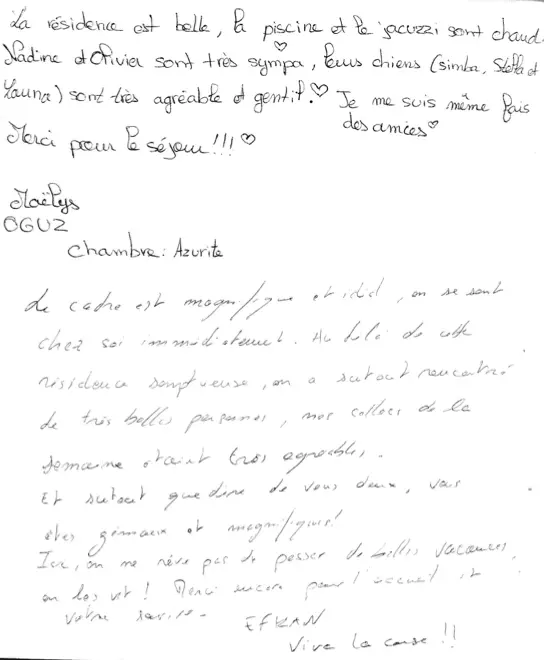 La résidence est belle, la piscine et le jacuzzi sont chaud.
Nadine et Olivier sont très sympa ♡, leurs chiens (simba, Stella et
Launa) sont très agréable et gentil.♡ Je me suis même fais
des amies♡
Merci pour le séjour!!! ♡
Maëlys
OGUZ
Chambre: Azurite
Le cadre est magnifique et idéal, on se sent
chez soi immédiatement. Au delà de cette
résidence somptueuse, on a surtout rencontré
de très belles personnes, mes collocs de la
semaine étaient très agréables.
Et surtout que dire de vous deux, vous
êtes gémiaux et magnifiques!
Ici, on ne rêve pas de passer de belles vacances,
on les vit! Merci encore pour l'accueil et
votre
EFKAN
Vive la Corse !!